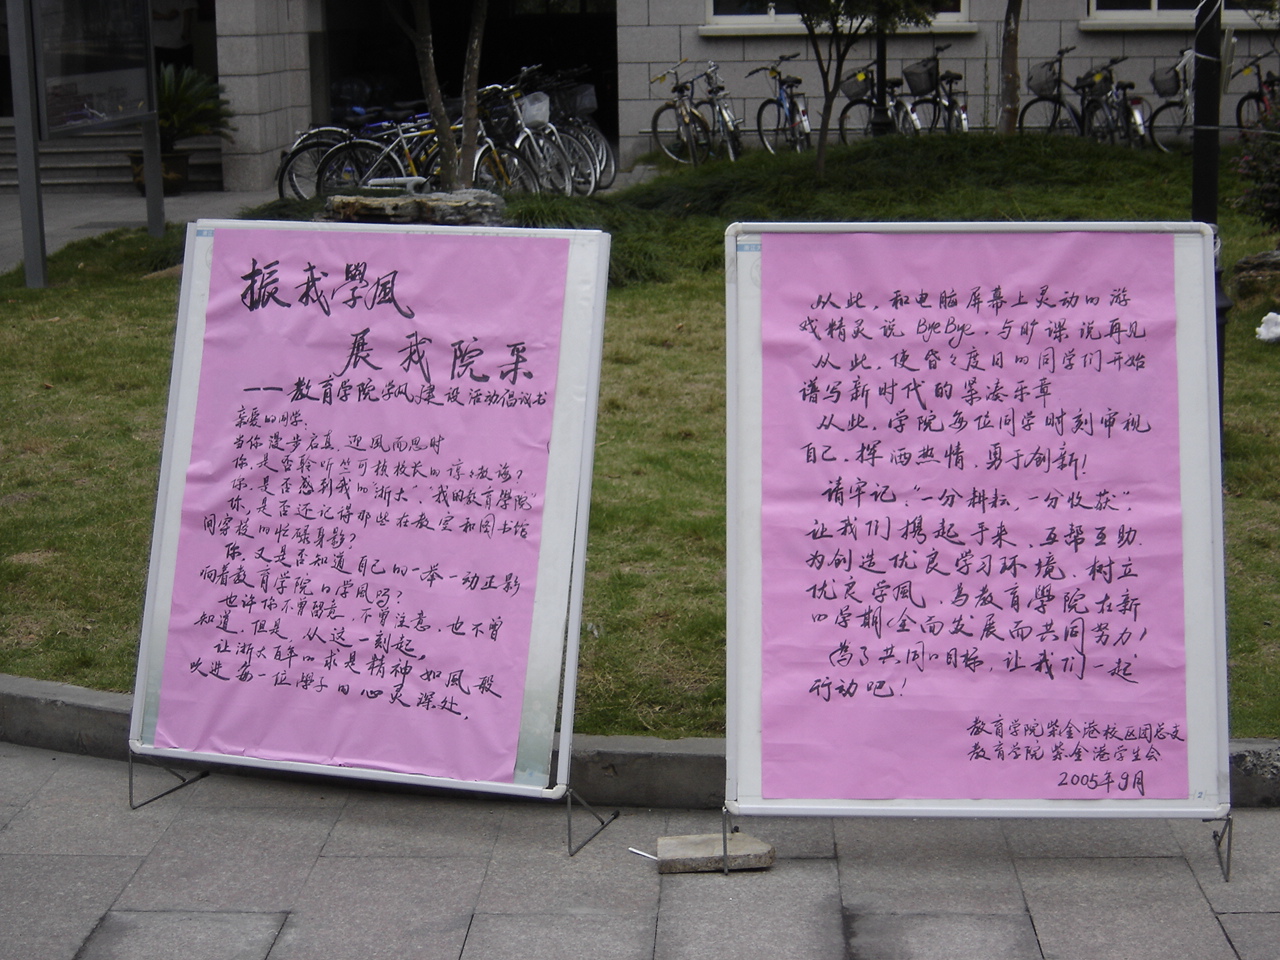 振我學風
展我院采
——教育学院学风建设活动倡议书
亲爱的同学:
当你漫步启真,迎风而思时
你,是否聆听竺可桢校长的谆々教诲?
你,是否感到我的"浙大","我的教育學院"
你,是否还记得那些在教室和图书馆
间穿梭的忙碌身影?
你,又是否知道自己的一举一动正影
响着教育学院的学風吗?
也许你不曾留意,不曾注意,也不曾
知道,但是,从这一刻起,
让浙大百年的求是精神如風般
吹进每一位學子的心灵深处,
从此,和电脑屏幕上灵动的游
戏精灵说ByeBye,与旷课说再见
从此,使昏々度日的同学们开始
谱写新时代的紧凑乐章
从此,学院每位同学时刻审视
自己,挥洒热情,勇于创新!
请牢记:"一分耕耘,一分收获",
让我们携起手来,互帮互助,
为创造优良学习环境,树立
优良学風,為教育學院在新
的学期(全面发展而共同努力)
為了共同的目标,让我们一起
行动吧!
教育学院紫金港校区团总支
教育学院紫金港学生会
2005年9月